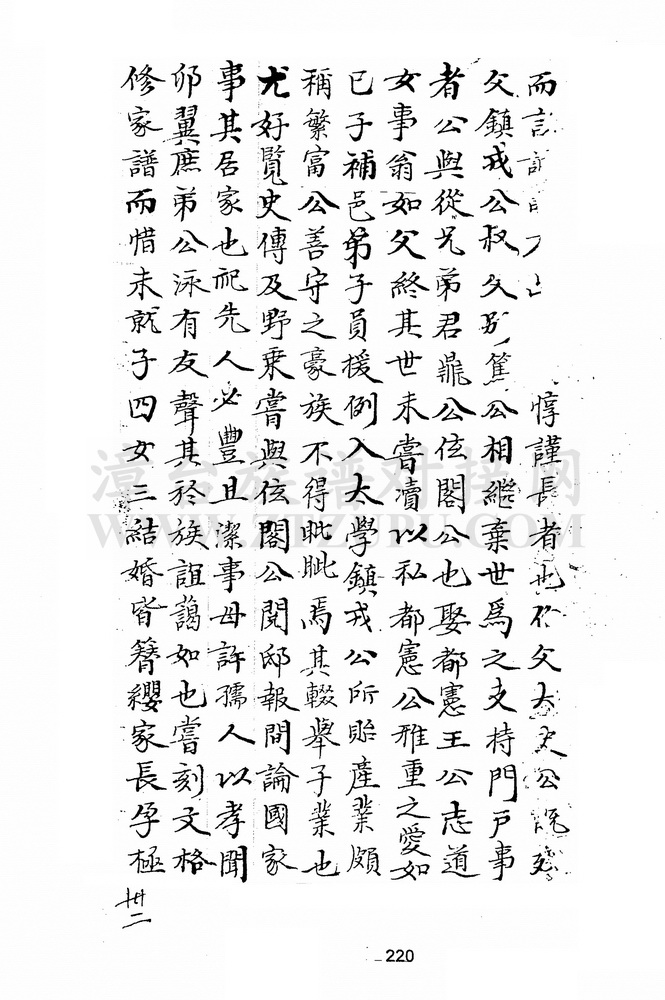 而言 惇謹長者也 父大 公
父鎮戎公叔父 篤公相繼棄世爲之支持門戸事
者公與從兄弟君鼎公伭閣公也娶都憲王公志道
女事翁如父終其世未嘗凟以私都憲公雅重之愛如
已子補邑弟子員援例入太學鎮戎公所貽產業頗
稱繁富公善守之豪族不得眦眦焉其輟舉子業也
尤好覧史傳及野乗嘗與伭閣公閱邸報間論國家
事其居家也祀先人必豐且潔事母許孺人以孝聞
卵翼庶弟公泳有友聲其於族誼藹如也嘗刻文格
修家譜而惜未就子四女三結婚皆簪纓家長孕極
卅二
220
漳台族谱对接网
WWW.ZTZUPU.COM